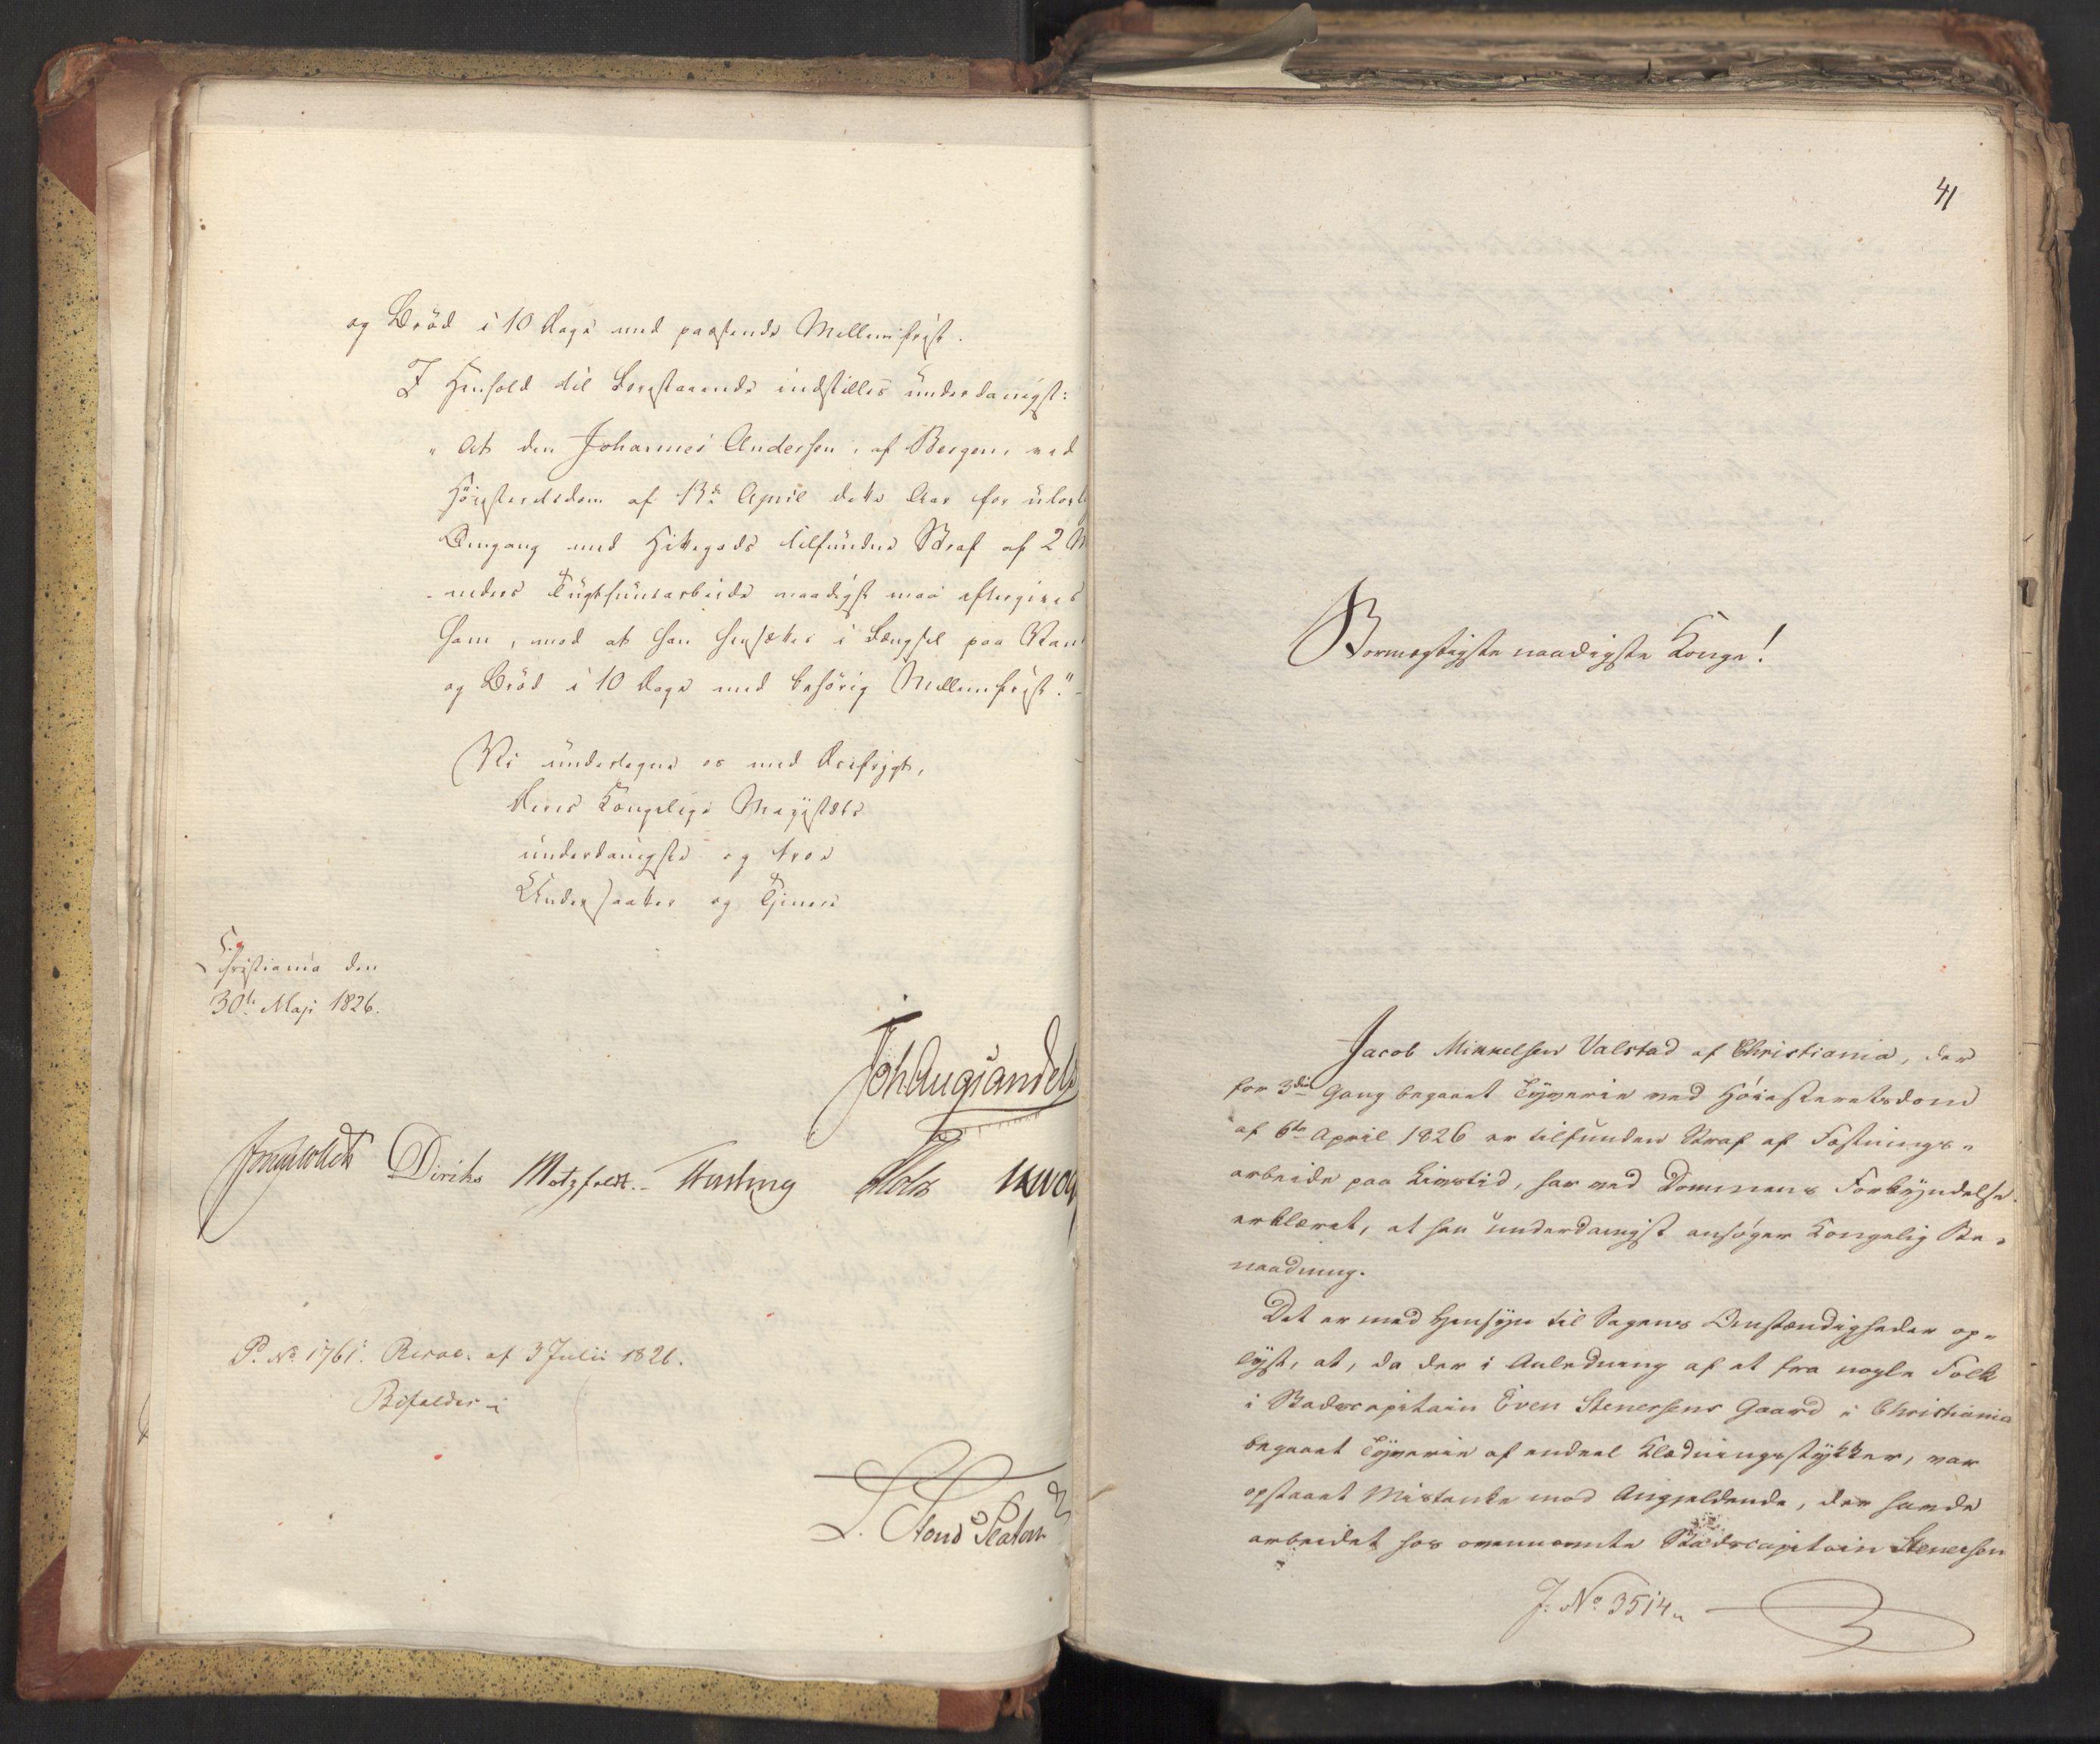 og Brød i 10 Dage med passende Mellemfrist.
I Henhold til Forestaaende indstilles underdanigst:
"At den Johannes Andersen, af Bergen, ved
Høiesteretsdom af 13de April dette Aar for ulovl
Omgang med Hittegods tilfundne Straf af 2 M
neders Tugthuusarbeide naadigst maa eftergives
ham, mod at han hensættes i Fængsel paa Van
og Brød i 10 Dage med behørig Mellemfrist."
Vi undertegne os med Ærefrygt,
Deres Kongelige Majestæts
underdanigste og troe
Undersaatter og Tjenere
Christiania den
30te Maji 1826.
Joh Aug Sandels
Diriks Motzfeldt. Fasting Holst
P. No 1761. Resol. af 3 Julii 1826.
Bifaldes
41
Stormægtigste naadigste Konge!
Jacob Mikkelsen Valstad af Christiania, der
for 3die Gang begaaet Tyverie ved Høiesteretsdom
af 6te April 1826 er tilfunden Straf af Fæstnings-
arbeide paa Livstid, har ved Dommens Forkyndelse
erklæret, at han underdanigst ansøger Kongelig Be-
naadning.
Det er med Hensyn til Sagens Omstændigheder op-
lyst, at, da der i Anledning af et fra nogle Folk
i Stadscapitain Even Stenersens Gaard i Christiania
begaaet Tyverie af endeel Klædningsstykker, var
opstaaet Mistanke mod Angjeldende, der havde
arbeidet hos ovennævnte Stadscapitain Stenersen
J. No 3514